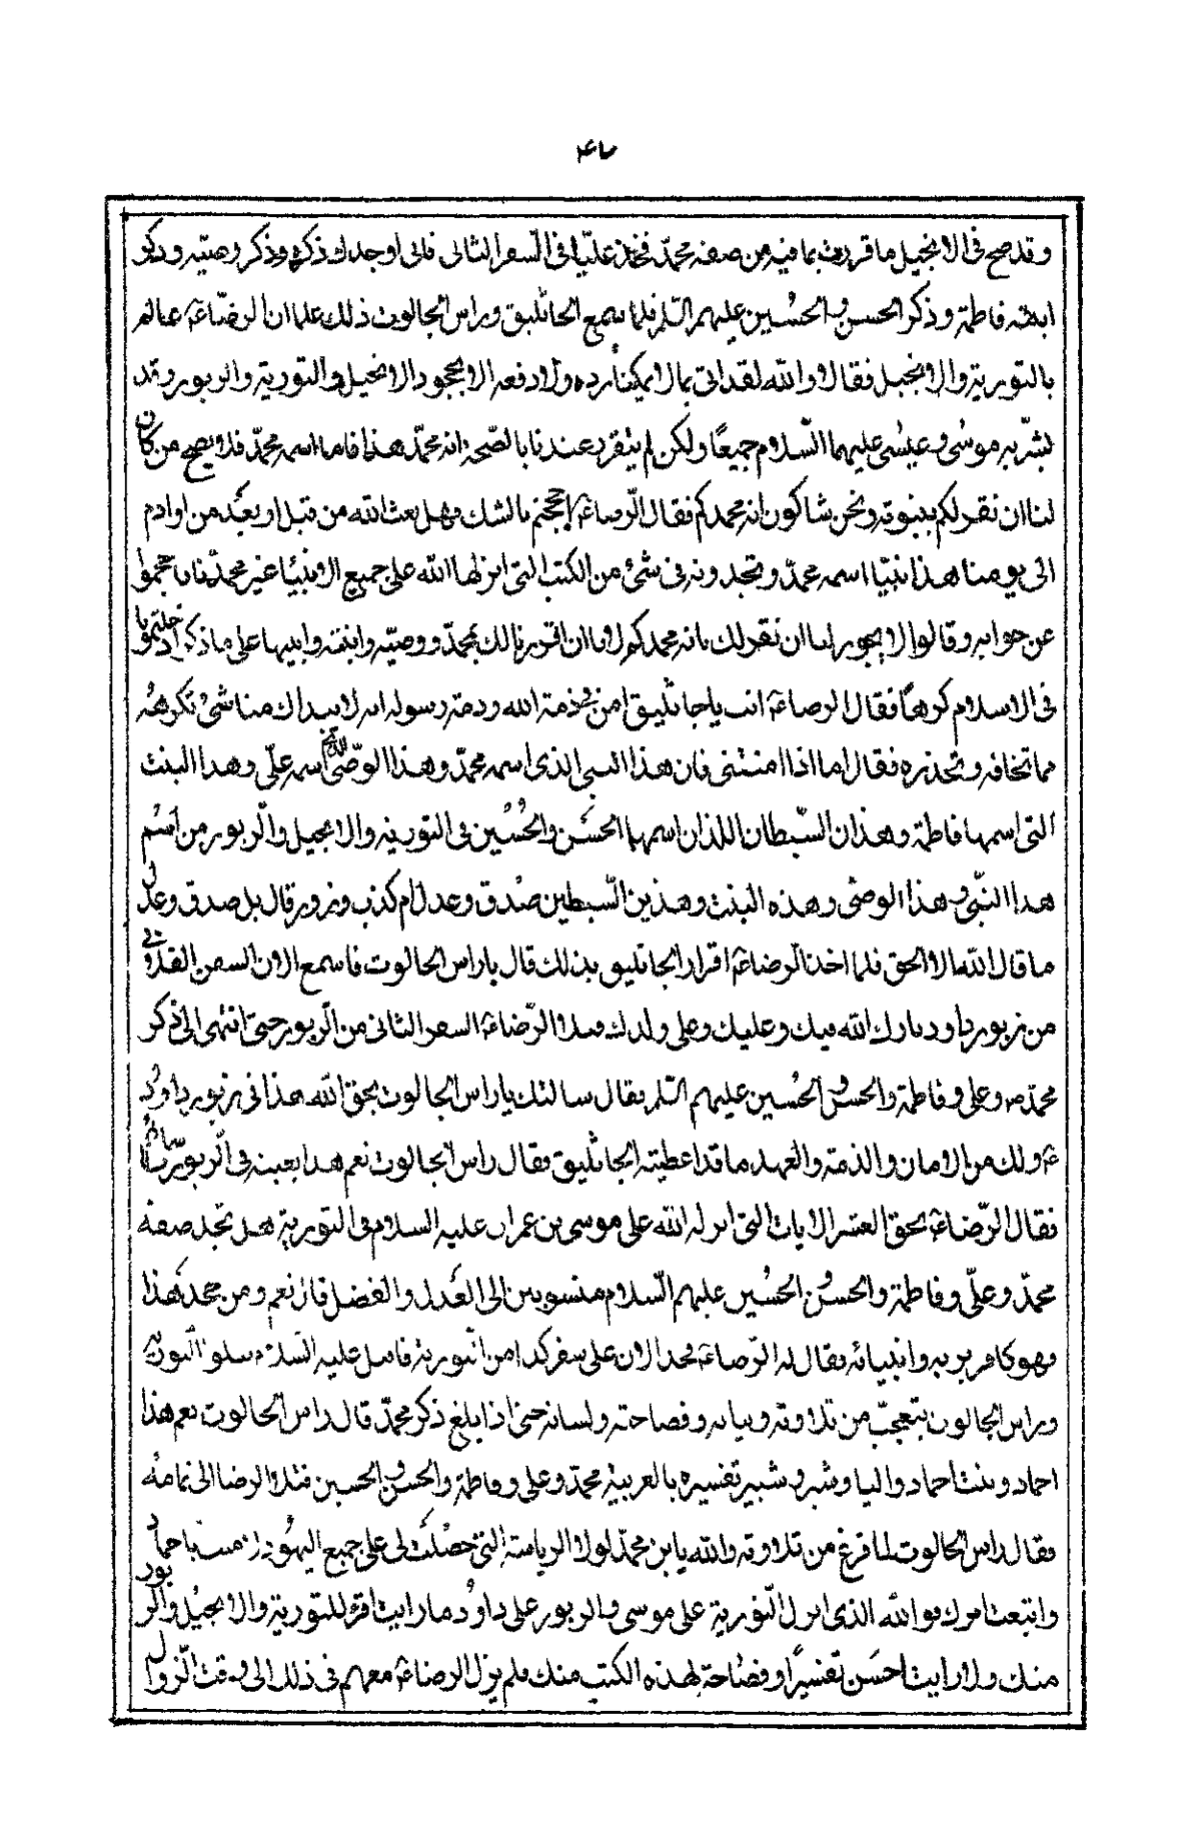 ۴۷
وقد صح فى الانجيل ما قررت بما فيه من صفه محمد فخذ علىّ فى السفر الثانى فانى اوجدك ذكره وذكر وصيته وذكر
ابنته فاطمة وذكر الحسن والحسين عليهم السلم فلما سمع الجاثليق وراس الجالوت ذلك علما ان الرضا عۤ عالم
بالتورية والانجيل فقالا والله لقد اتى بما لا يمكننا رده ولا دفعه الا بجحود الانجيل والتورية والزبور وقد
بشر به موسى وعيسى عليهما السلام جميعًا ولكن لم يتقرر عندنا بالصحة انه محمد هذا فاما اسمه محمد فلا يصح من كان
لنا ان نقر لكم بنبوته ونحن شاكون انه محمدكم فقال الرضا عۤ احججتم بالشك فهل بعث الله من قبل او بعد من ادم
الى يومنا هذا نبيّا اسمه محمدّ وتجدونه فى شئ من الكتب التى انزلها الله على جميع الانبيا غير محمدّنا فاحجموا
عن جوابه وقالوا لا يجوز لنا ان نقر لك بانه محمدكم لانا ان اقررنا لك بمحمدّ ووصيّه وابنته وابنيها على ما ذكر ادخلتمونا
فى الاسلام كرهًا فقال الرضا عۤ انت يا جاثليق امن فى ذمة الله وذمة رسوله انه لا يبداك منا شئ تكرهه
مما تخافه وتحذره فقال اما اذا امنتنى فان هذا النبى الذى اسمه محمدّ وهذا الوصّى الذى اسمه علىّ وهذا البنت
التى اسمها فاطمة وهذان السّبطان اللذان اسمهما الحسَن والحُسُين فى التورية والانجيل والزّبور من اسُم
هذا النبّى وهذا الوصى وهذه البنت وهذين السّبطين صُدق وعدل ام كذب وزور قال بل صدق وعدل
ما قال الله الا الحق فلما اخذ الرضا عۤ اقرار الجاثليق بذلك قال ياراس الجالوت فاسمع الان السفر الفلانى
من زبور داود بارك الله فيك وعليك وعلى ولدك فتلا الرّضا عۤ السفر الثانى من الزّبور حتى انتهى الى ذكر
محمدّ ص وعلى وفاطمة والحسن والحُسين عليهم السّلم فقال سالتك ياراس الجالوت بحق الله هذا فى زبور داود
عۤ ولك من الامان والذمة والعهد ما قد اعطيته الجاثليق فقال راس الجالوت نعم هذا بعينه فى الزبور باسمائهم
فقال الرّضا عۤ بحق العشر الايات التى انزله الله على موسى بن عمران عليه السلام فى التورية هل تجد صفة
محمدّ وعلىّ وفاطمة والحسن والحُسين عليهم السّلام منسوبين الى العَدل والفضل قال نعم ومن جحد هذا
فهو كافر بربه وانبيائه فقال له الرّضا عۤ فخذ الان على سفر كذا من التورية فاقبل عليه السلام يتلو التورية
وراس الجالوت يتعجبّ من تلاوته وبيانه وفصاحته ولسانه حتى اذا بلغ ذكر محمدّ قال راس الجالوت نعم هذا
احماد وبنت احماد واليا وشبر وشبير تفسيره بالعربية محمدّ وعلى وفاطمة والحسن والحسين فتلا الرضا الى تمامه
فقال راس الجالوت لما فرغ من تلاوته والله يا بن محمدّ لولا الرياسة التى حَصُلَت لى على جميع اليهود لامنت باحماد
واتبعت امرك فو الله الذى انزل التّورية على موسى والزبور على داود ما رايت اقرء للتورية والانجيُل والزبور
منك ولا رايت احسَن تفسيرًا وفصاحة لهذه الكتب منك فلم يزل الرضا عۤ معهم فى ذلك الى وقت الزّوال